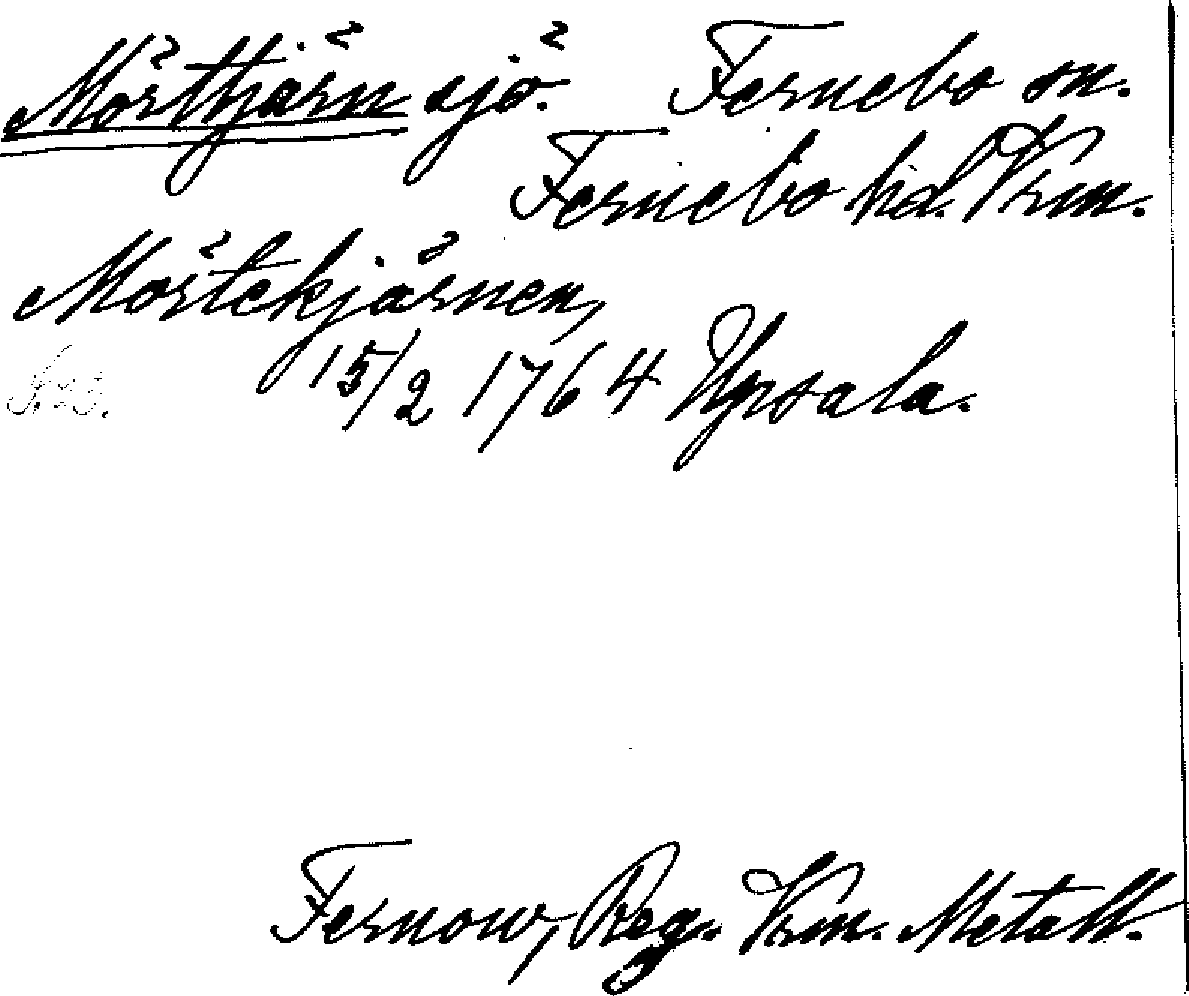 Mörttjärn sjö. Fernebo sn.
Fernebo hd. Vrm.
Mörtekjärnen,
S. 23. 15/2 1764 Upsala.
Fernow, Reg. Vrm. Metall.